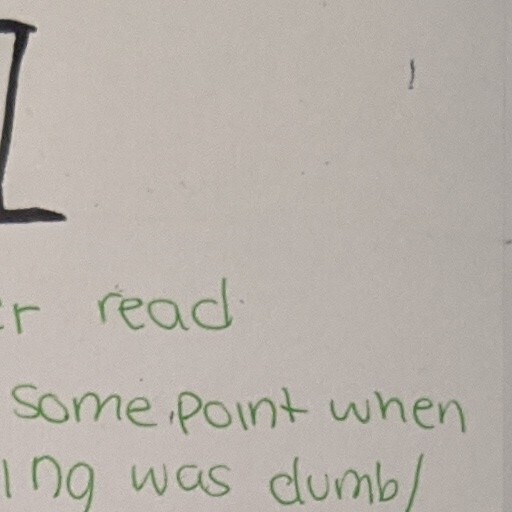 read
some point when
ing was dumb/